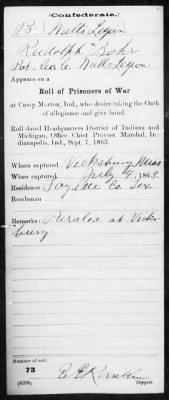 (Confederate.)
B Watts Legion
Rudolph Bohr
Pvt. Co. C. Watts Legion
Appears on a
Roll of Prisoners of War
at Camp Morton, Ind., who desire taking the Oath
of allegiance and give bond.
Roll dated Headquarters District of Indiana and
Michigan, Office Chief Provost Marshal, In-
dianapolis, Ind., Sept. 7, 1863.
Where captured Vicksburg, Miss
When captured July 4, 1863.
Residence Fayette Co. Tex
Bondsman
Remarks: Paroled at Vicks-
burg.
Number of roll:
73
(639b) Copyist.